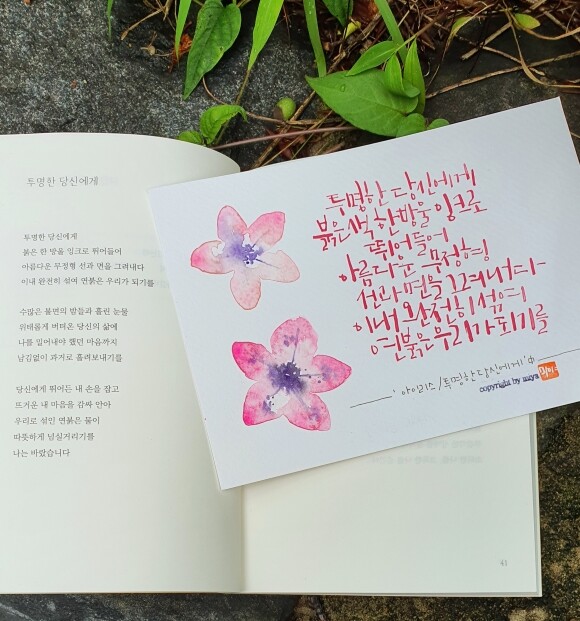 투명한 당신에게
투명한 당신에게
붉은 한 방울 잉크로 뛰어들어
아름다운 무정형 선과 면을 그려내다
이내 완전히 섞여 연붉은 우리가 되기를
수많은 불면의 밤들과 흘린 눈물
위태롭게 버텨온 당신의 삶에
나를 잃어내야 했던 마음까지
남김없이 과거로 흘려보내기를
당신에게 뛰어든 내 손을 잡고
뜨거운 내 마음을 감싸 안아
우리로 섞인 연붉은 물이
따뜻하게 넘실거리기를
나는 바랐습니다
투명한 당신에게
붉은색 한방울 잉크로
뛰어들어
아름다운 무정형
선과 면을 그려내다
이내 완전히 섞여
연붉은 우리가 되기를
아이리스/투명한 당신에게' 中
copyright by maya
41